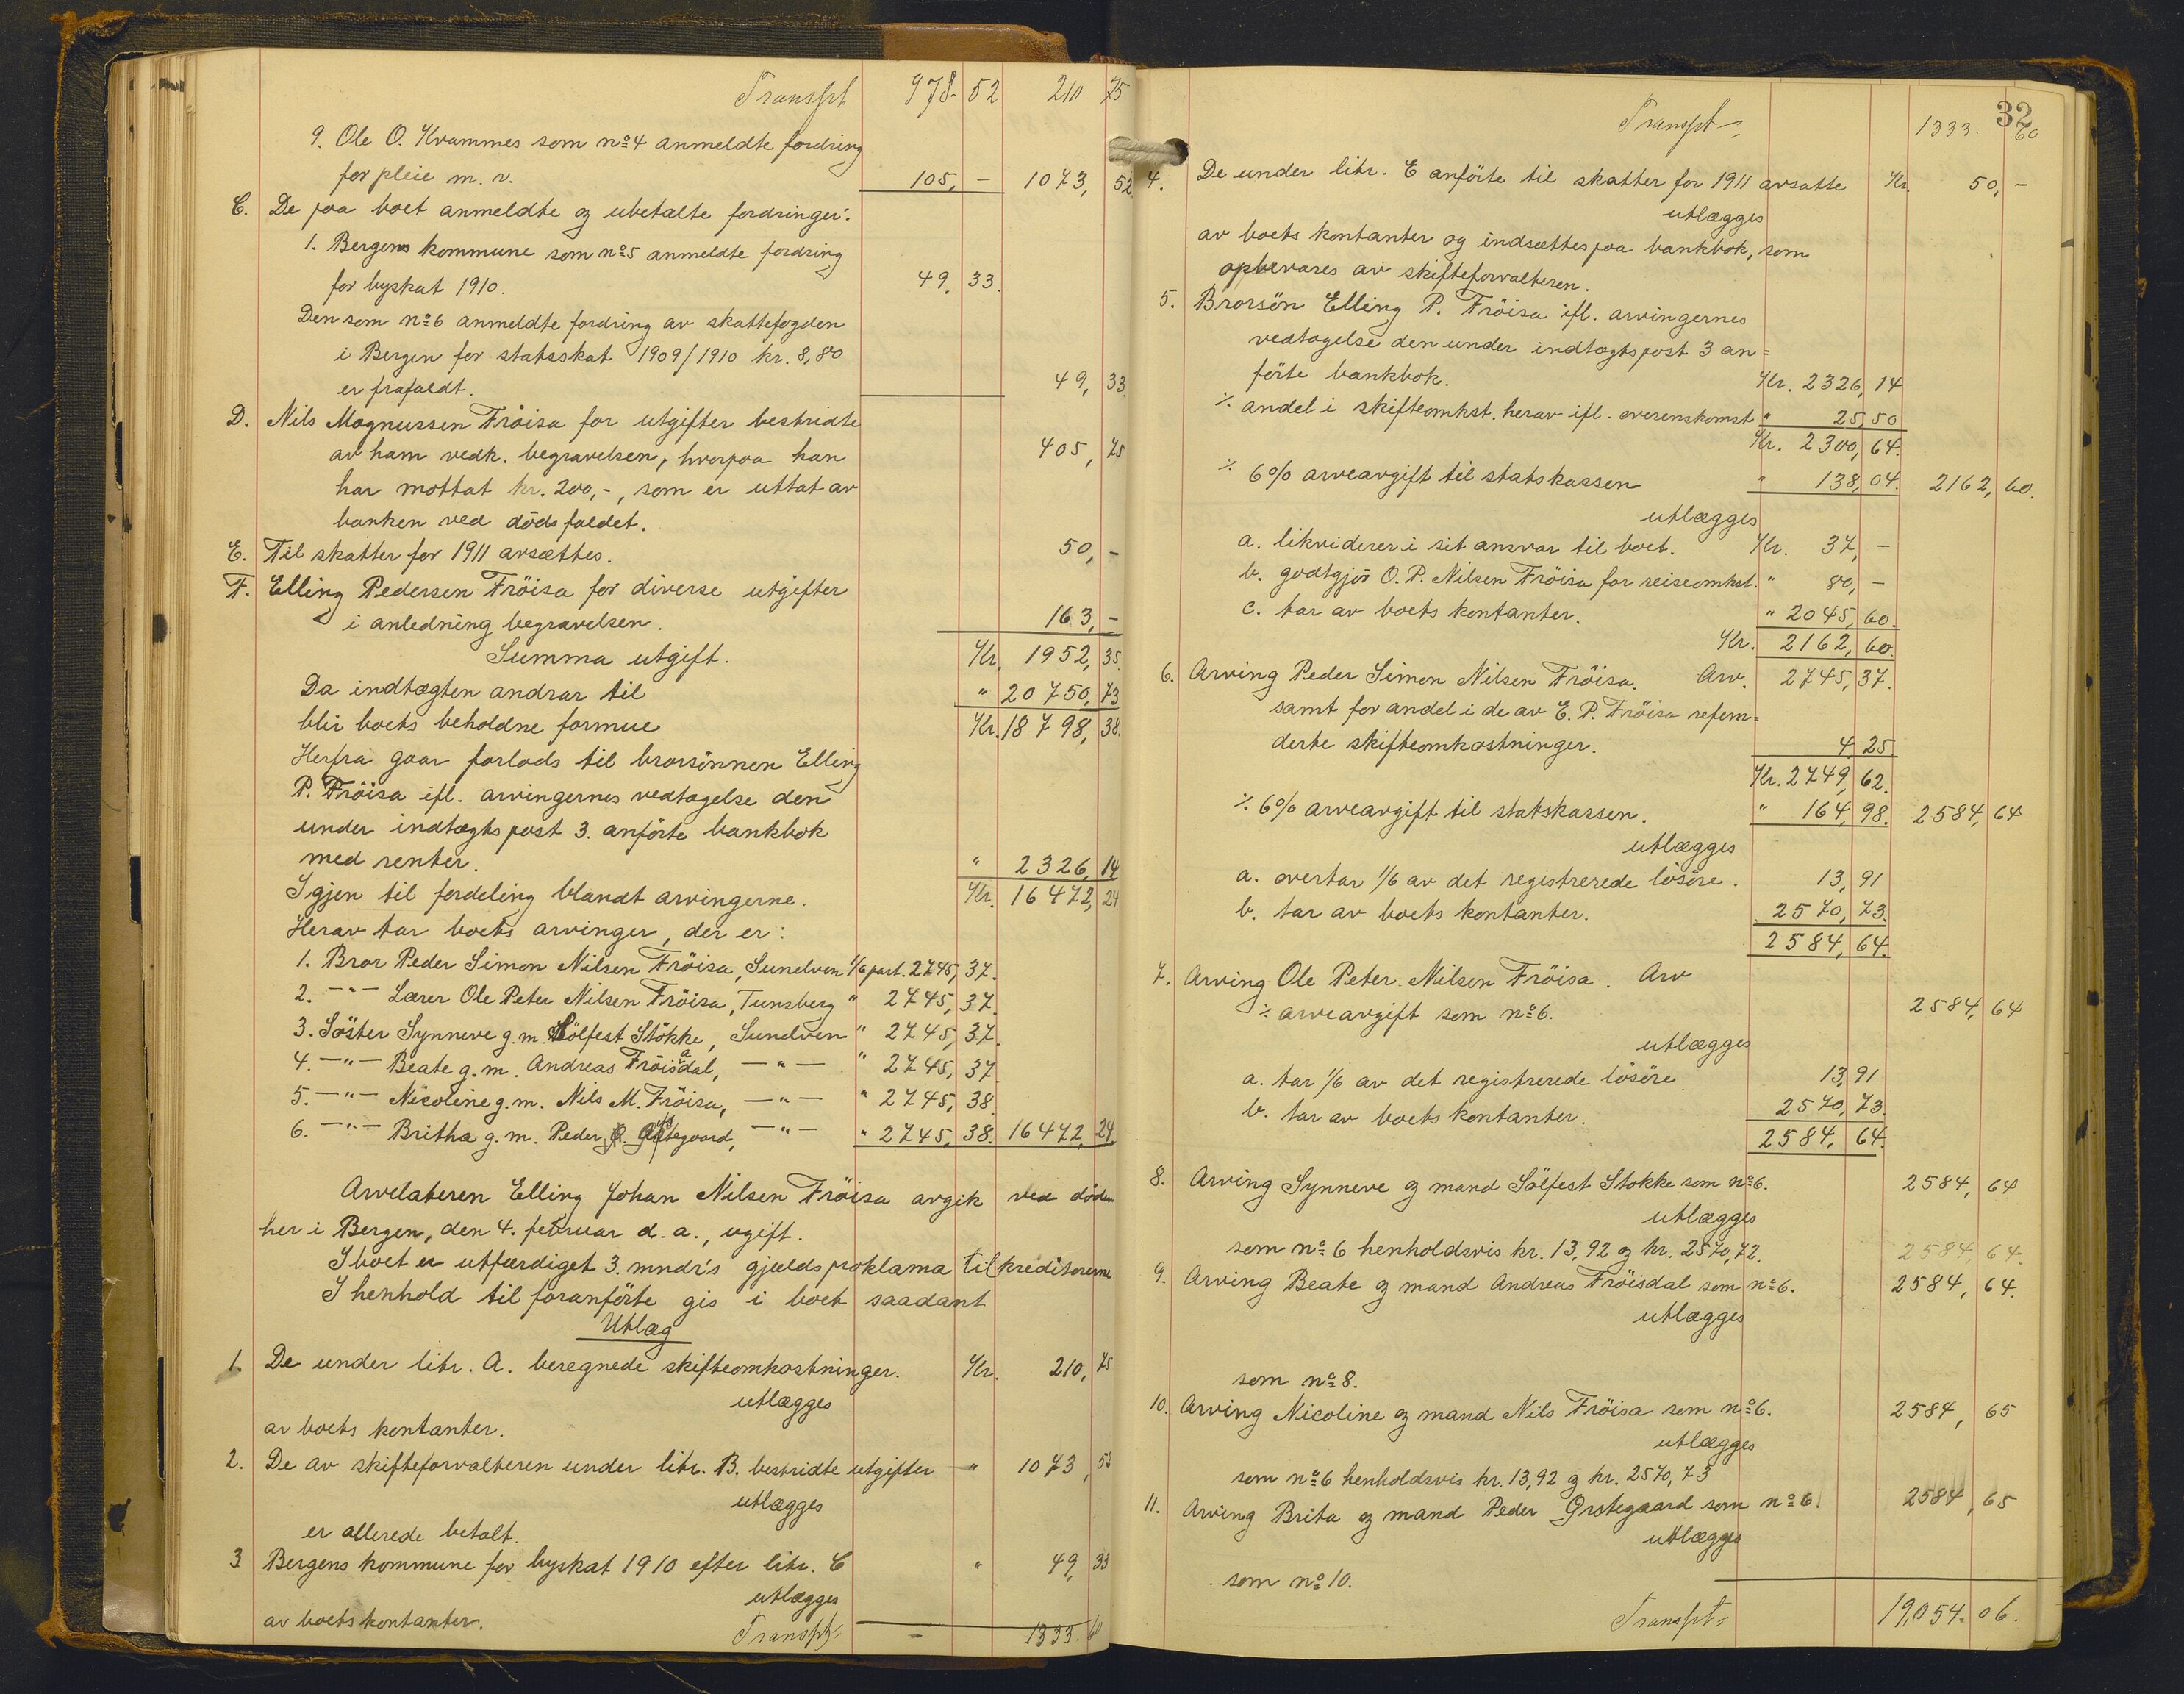 Transpt 978. 52 210 75
9. Ole O. Kvammes som no 4 anmeldte fordring
for pleie m. v. 105, - 1073, 52
C. De paa boet anmeldte og ubetalte fordringer:
1. Bergens kommune som no 5 anmeldte fordring
for byskat 1910. 49, 33.
Den som no 6 anmeldte fordring av skattefogden
i Bergen for statsskat 1909/1910 kr. 8,80
er frafaldt. 49, 33.
D. Nils Magnussen Fröisa for utgifter bestridte
av ham vedk. begravelsen, hvorpaa han 405, 75
har mottat kr. 200,-, som er uttat av
banken ved dödsfaldet.
E. Til skatter for 1911 avsættes. 50, -
F. Elling Pedersen Fröisa for diverse utgifter
i anledning begravelsen. 163, -
Summa utgift. Kr. 1952, 35.
Da indtægten andrar til " 20750, 73
blir boets beholdne formue Kr. 18798, 38.
Herfra gaar forlods til brorsönnen Elling
P. Fröisa ifl. arvingernes vedtagelse den
under indtægtspost 3. anförte bankbok
med renter. " 2326, 14
Igjen til fordeling blandt arvingerne. Kr. 16472, 24.
Herav tar boets arvinger, der er:
1. Bror Peder Simon Nilsen Fröisa, Sundven 1/6 part. 2745, 37.
2. -"- Lærer Ole Peter Nilsen Fröisa, Tunsberg " 2745, 37.
3. Söster Synneve g. m. Sölfest Stökke, Sundven " 2745, 37.
4. -"- Beate g. m. Andreas Fröisdal, -"- " 2745, 37.
5. -"- Nicoline g. m. Nils M. Fröisa, -"- " 2745, 38.
6. -"- Britha g. m. Peder, -"- " 2745, 38. 16472, 24.
Arvelateren Elling Johan Nilsen Fröisa avgik ved döden
her i Bergen, den 4. februar d. a., ugift.
I boet er utfærdiget 3. mndr's gjældsproklama til kreditorerne.
I henhold til foranförte gis i boet saadant
Utlæg
1. De under litr. A. beregnede skifteomkostninger. Kr. 210, 75
utlægges
av boets kontanter.
2. De av skifteforvalteren under litr. B. bestridte utgifter " 1073, 52
utlægges
er allerede betalt.
3 Bergens kommune for byskat 1910 efter litr. C " 49, 33
utlægges
av boets kontanter.
Transpt 1333. 60
32
Transpt 1333. 60
4. De under litr. E anförte til skatter for 1911 avsatte Kr. 50, -
utlægges
av boets kontanter og indsættes paa bankbok, som
opbevares av skifteforvalteren.
5. Brorsön Elling P. Fröisa ifl. arvingernes
vedtagelse den under indtægtspost 3 an=
förte bankbok. Kr. 2326, 14
÷ andel i skifteomkst. herav ifl. overenskomst " 25, 50
Kr. 2300, 64.
÷ 6% arveavgift til statskassen " 138, 04. 2162, 60.
utlægges
a. likviderer i sit ansvar til boet. Kr. 37, -
b. godtgjör O. P. Nilsen Fröisa for reiseomkst. " 80, -
c. tar av boets kontanter. " 2045, 60.
Kr. 2162, 60.
6. Arving Peder Simon Nilsen Fröisa. Arv. 2745, 37.
samt for andel i de av E. P. Fröisa refun=
derte skifteomkostninger. 4, 25
Kr. 2749, 62.
÷ 6% arveavgift til statskassen. " 164, 98. 2584, 64
utlægges
a. overtar 1/6 av det registrerede lösöre. 13, 91
b. tar av boets kontanter. 2570, 73.
2584, 64.
7. Arving Ole Peter Nilsen Fröisa. Arv
÷ arveavgift som no 6. 2584, 64
utlægges
a. tar 1/6 av det registrerede lösöre 13, 91
b. tar av boets kontanter. 2570, 73.
2584, 64.
8. Arving Synneve og mand Sölfest Stokke som no 6. 2584, 64
utlægges
som no 6 henholdsvis kr. 13,92 og kr. 2570,72. 2584, 64.
9. Arving Beate og mand Andreas Fröisdal som no 6. 2584, 64.
utlægges
som no 8.
10. Arving Nicoline og mand Nils Fröisa som no 6. 2584, 65
utlægges
som no 6 henholdsvis kr. 13,92 og kr. 2570,73
11. Arving Brita og mand Peder Grotegaard som no 6. 2584, 65
utlægges
som no 10.
Transpt 19,054. 06.